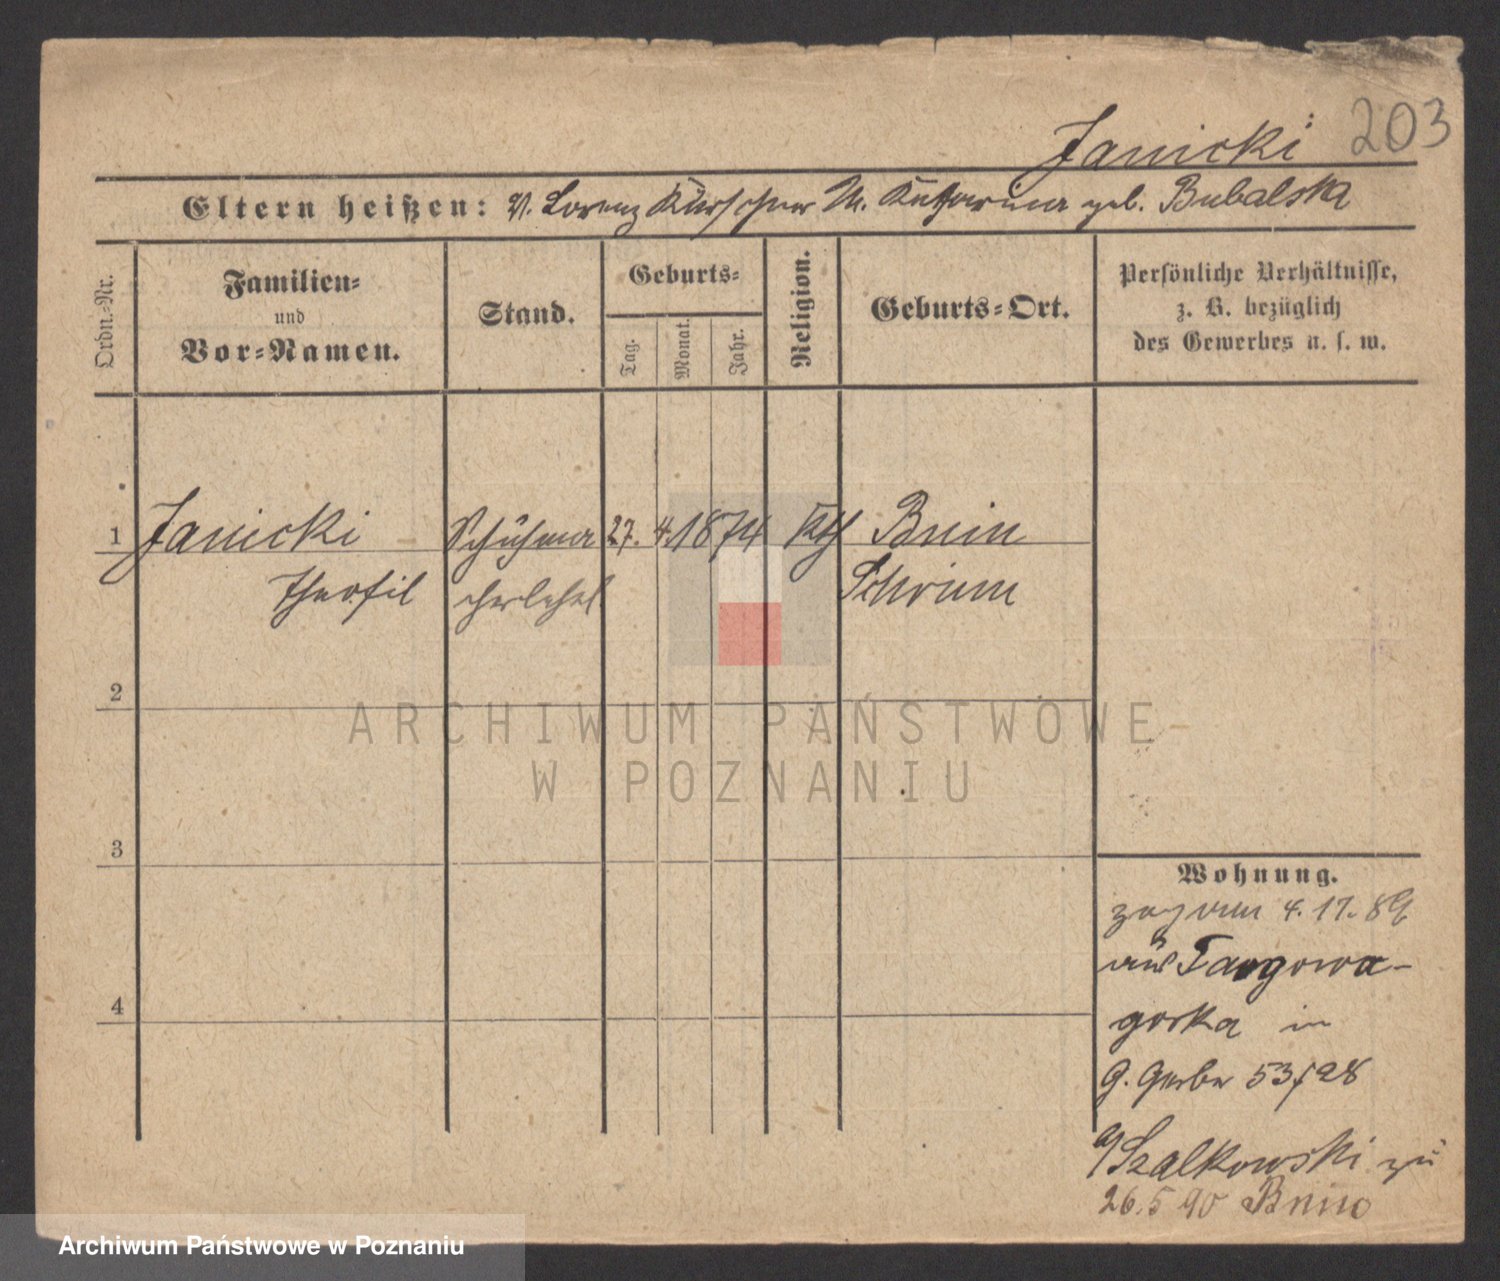 203
Janicki
Eltern heißen: V. Lorenz Kürschner M. Katharina geb. Bubalska
Ordn.-Nr.
Familien-
und
Vor-Namen.
Stand.
Geburts-
Tag.
Monat.
Jahr.
Religion.
Geburts-Ort.
Persönliche Verhältnisse,
z. B. bezüglich
des Gewerbes u. s. w.
1 Janicki Schuhma 27. 4. 1874 Kth Bnin
Theofil cherlehrl Schrimm
2
3
4
Wohnung.
zog am 4. 11. 89
aus Targowa-
gorka in
G. Gerber 53/28
b/Szalkowski zu
26.5 90 Bnin
ARCHIWUM PAŃSTWOWE
W POZNANIU
Archiwum Państwowe w Poznaniu